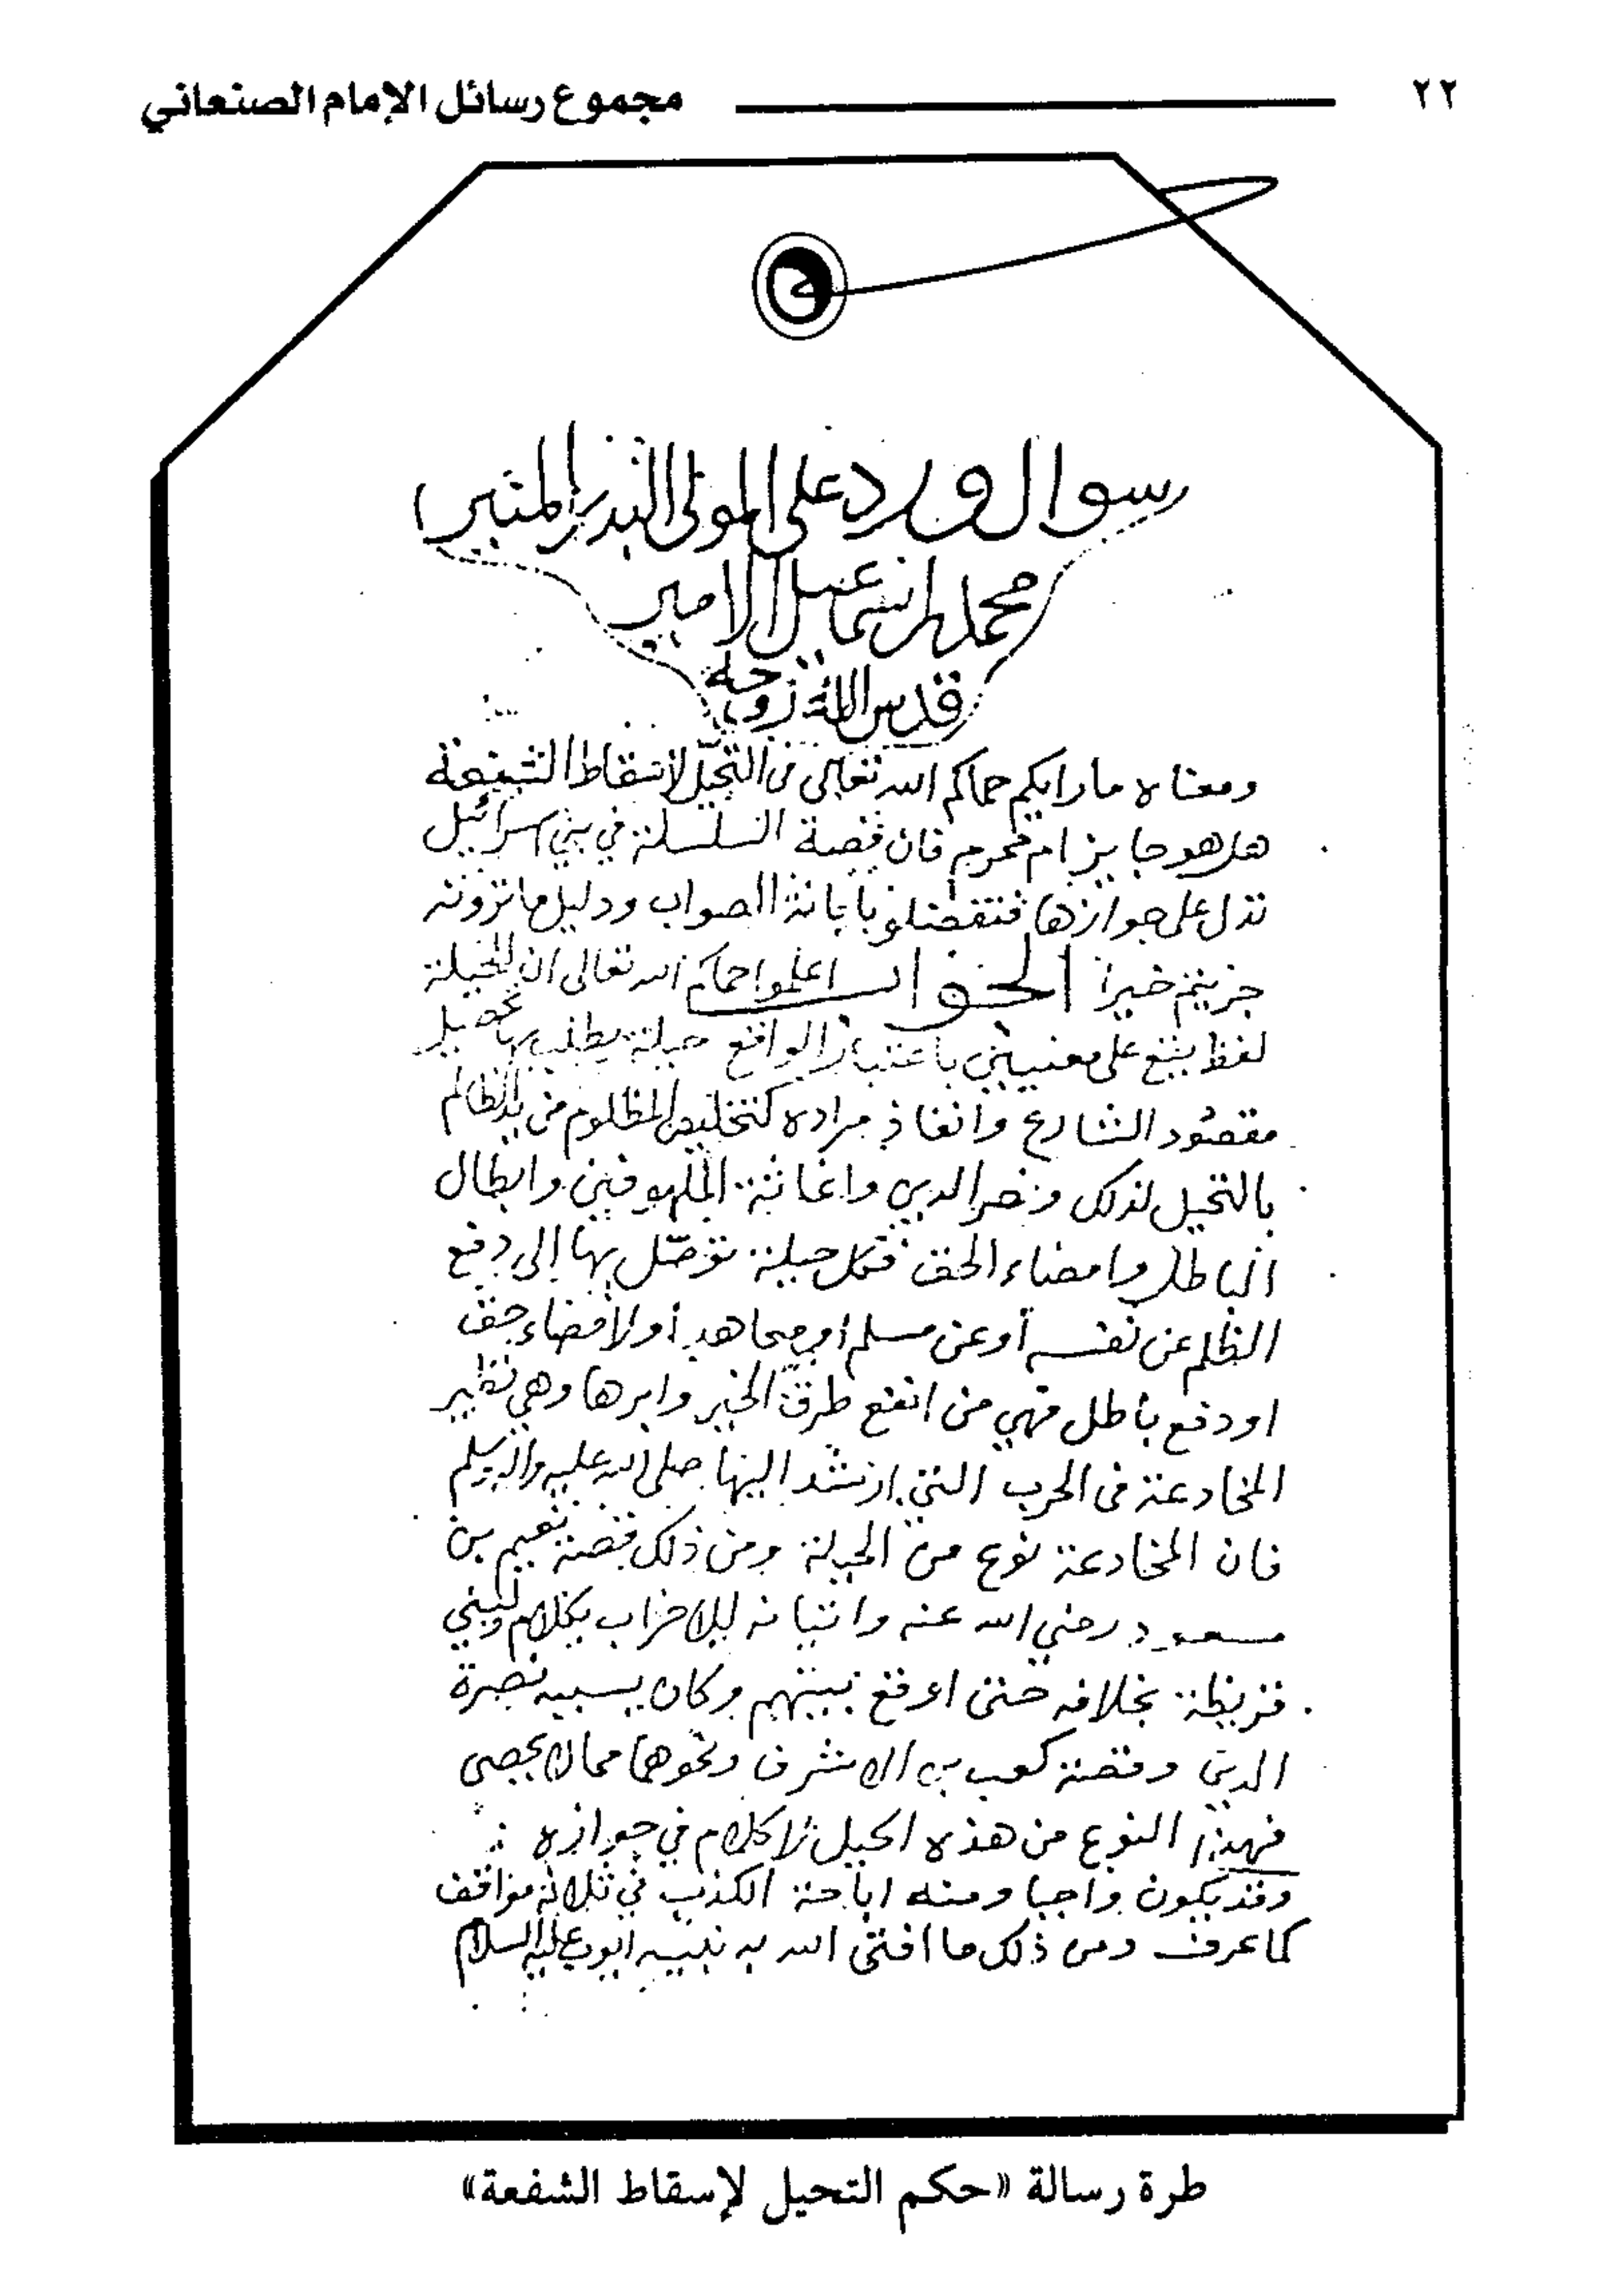 ٢٢ مجموع رسائل الإمام الصنعاني
سوال ورد على المولى البدر المنير
محمد بن اسماعيل الامير
قدس الله روحه
ومعناه ما رايكم حماكم الله تعالى في التحيل لاسقاط الشفعة
هل هو جايز ام محرم فان قصة السلسلة في بني اسرائيل
تدل على جوازها فتفضلوا بابانة الصواب ودليل ما ترونه
جزيتم خيرا الجواب اعلموا حماكم الله تعالى ان الحيلة
لفظ يقع على معنيين باعتبار الواقع حيلة يطلب بها تحصيل
مقصود الشارع وانفاذ مراده كتخليص المظلوم من يد الظالم
بالتحيل لذلك ونصر الدين واغاثة الملهوفين وابطال
الباطل وامضاء الحق فكل حيلة توصل بها إلى دفع
الظلم عن نفسه أو عن مسلم او مجاهد أو لاقضاء حق
او دفع باطل فهي من انفع طرق الخير وابرها وهي نظير
المخادعة في الحرب التي ارشد اليها صلى الله عليه واله وسلم
فان المخادعة نوع من الحيلة ومن ذلك قصة نعيم بن
مسعود رضي الله عنه واتيانه للاحزاب بكلام ولبني
قريظة بخلافه حتى اوقع بينهم وكان بسببه نصرة
الدين وقصة كعب بن الاشرف ونحوهما مما لا يحصى
فهذا النوع من هذه الحيل لا كلام في جوازه
وقد يكون واجبا ومنه اباحة الكذب في ثلاثة مواقف
كما عرف ومن ذلك ما افتى الله به نبيه ايوب عليه السلام
طرة رسالة «حكم التحيل لإسقاط الشفعة»